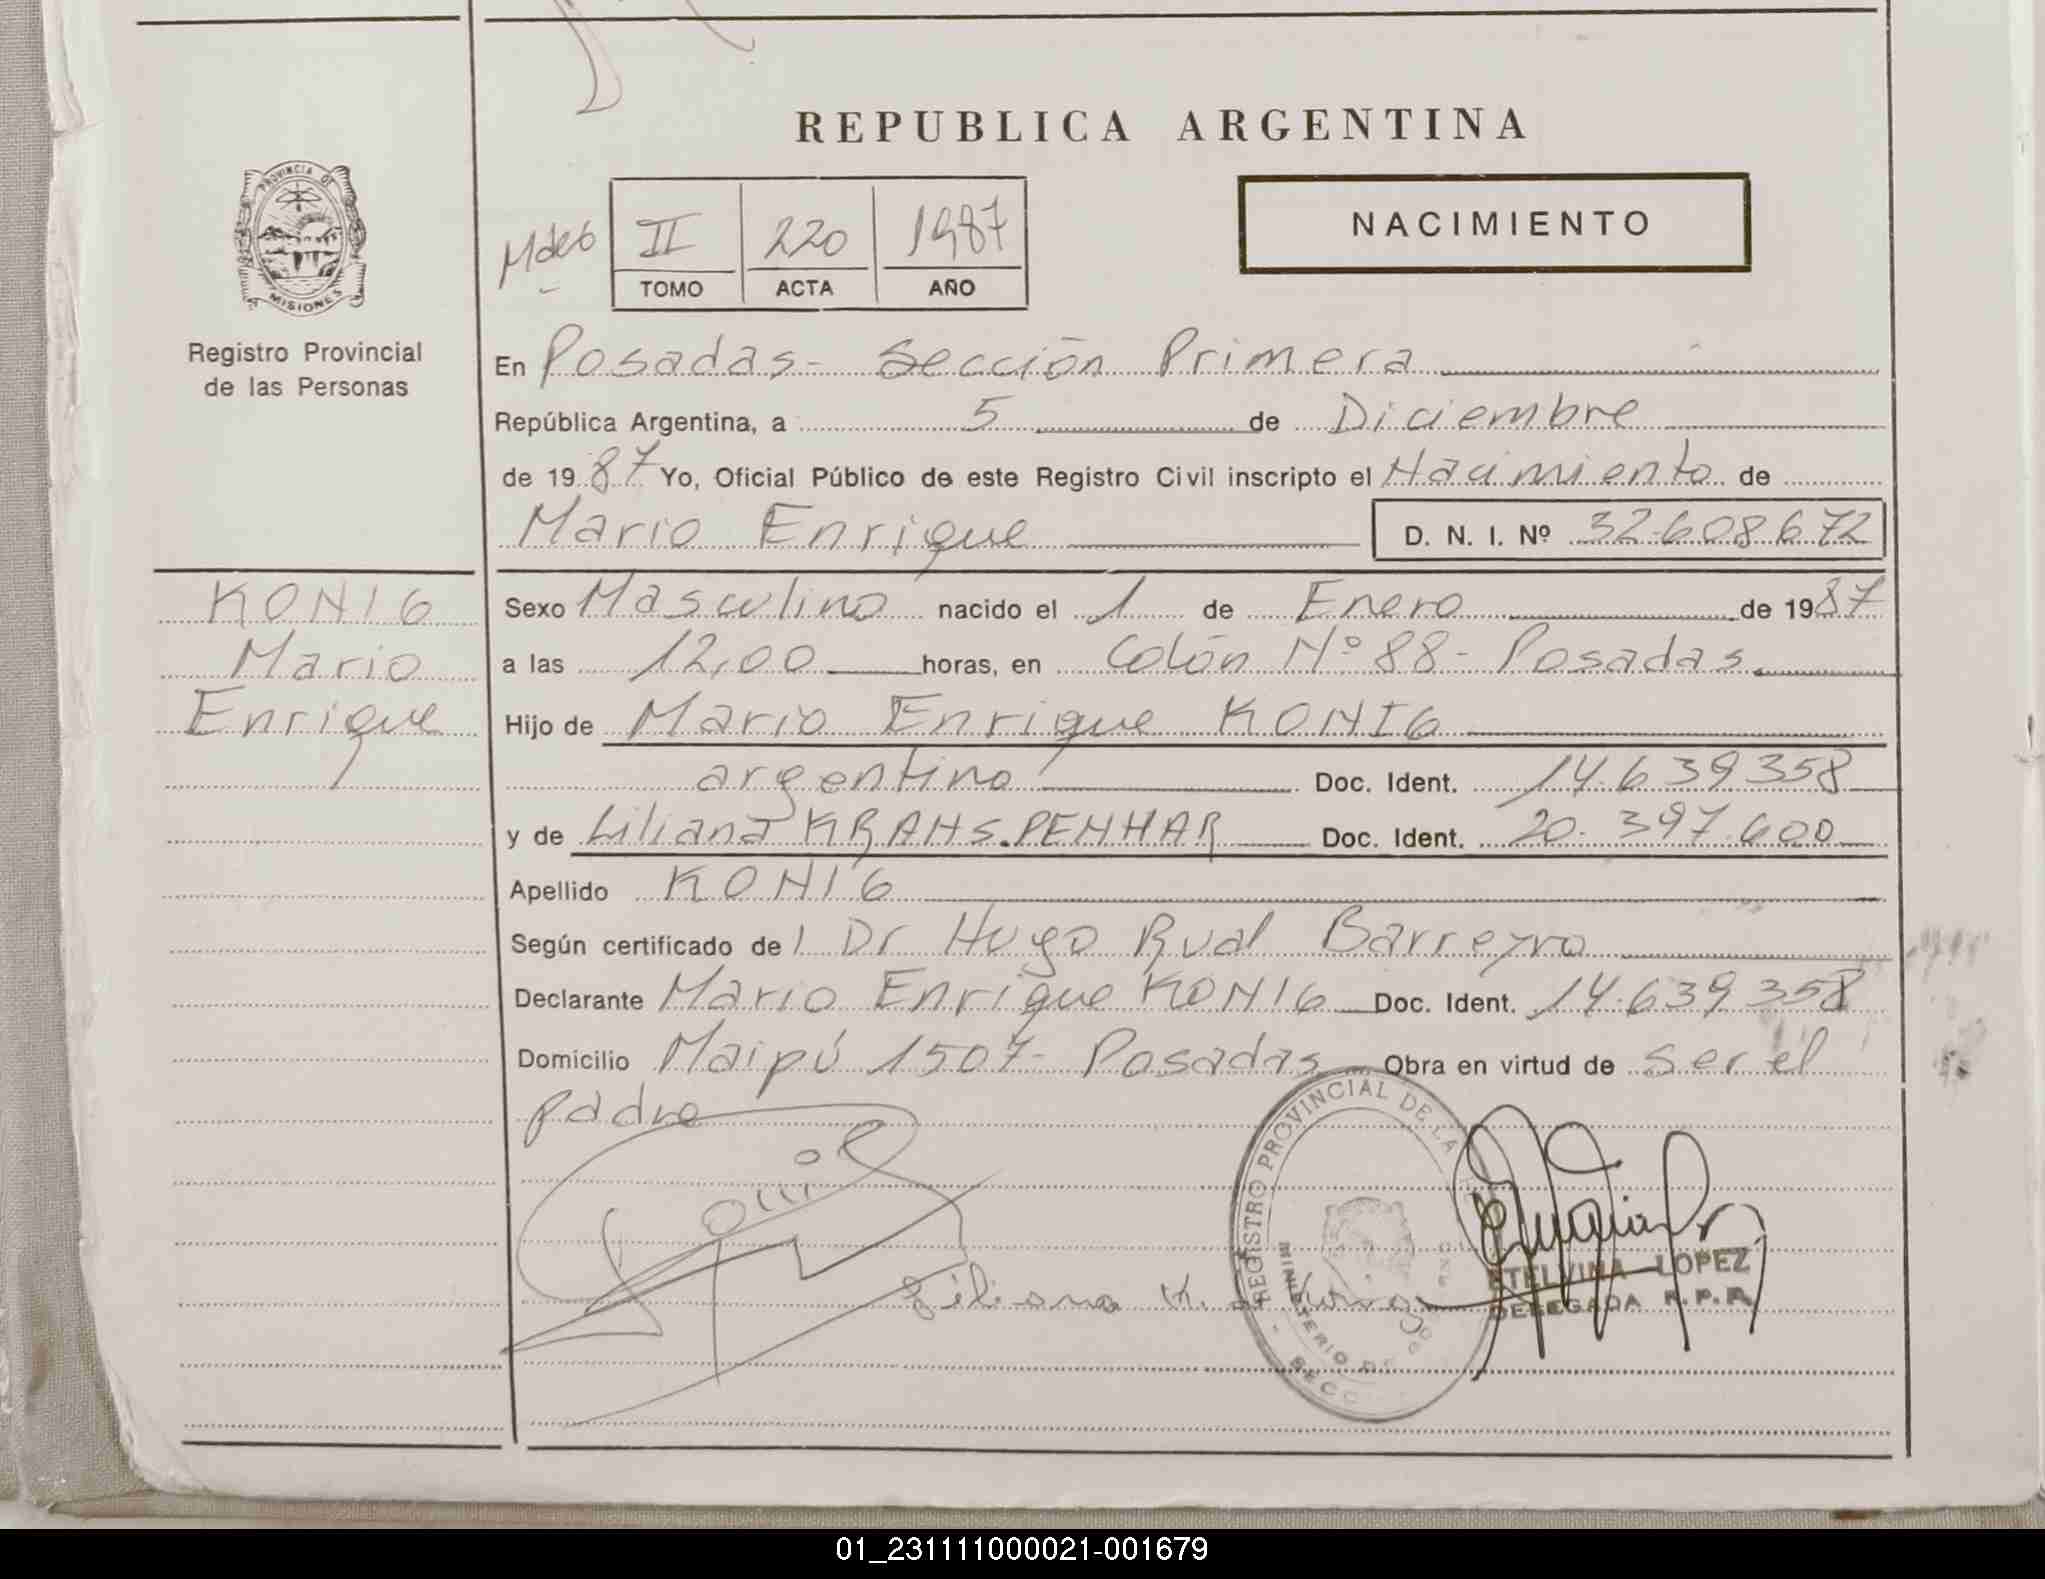 REPUBLICA ARGENTINA
PROVINCIA DE
MISIONES
Registro Provincial
de las Personas
II 220 1987
TOMO ACTA AÑO
NACIMIENTO
En Posadas- Sección Primera
República Argentina, a 5 de Diciembre
de 1987 Yo, Oficial Público de este Registro Civil inscripto el Nacimiento de
Mario Enrique D. N. I. Nº 32.608.672
KONIG
Mario
Enrique
Sexo Masculino nacido el 1 de Enero de 1987
a las 12,00 horas, en Colón Nº 88- Posadas
Hijo de Mario Enrique KONIG
argentino Doc. Ident. 14.639.358
y de Liliana KRAHS.PENHAR Doc. Ident. 20.397.600
Apellido KONIG
Según certificado de l Dr Hugo Rual Barreyro
Declarante Mario Enrique KONIG Doc. Ident. 14.639.358
Domicilio Maipú 1507- Posadas Obra en virtud de ser el
padre
Liliana K.
REGISTRO PROVINCIAL DE LA
MINISTERIO DE GOBIERNO
SECC
ETELVINA LOPEZ
DELEGADA R.P.P.
01_231111000021-001679